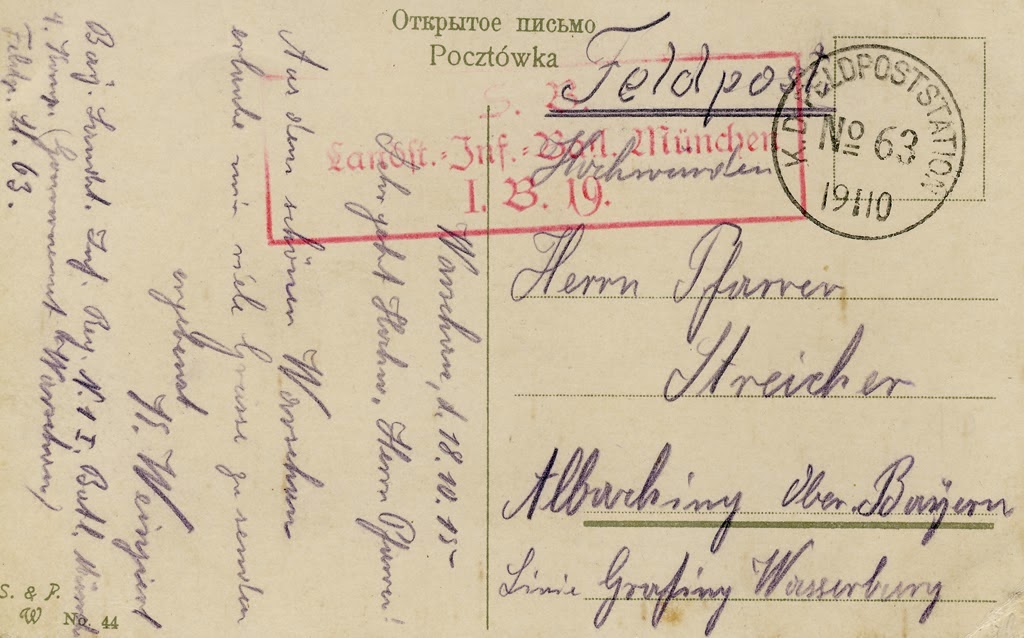 Открытое письмо
Pocztówka
Feldpost
S. B.
Landst.-Inf.-Batl. München
I. B. 19.
K.D. FELDPOSTSTATION
No 63
19 10
Hochwürden
Herrn Pfarrer
Streicher
Albaching Ober-Bayern
Linie Grafing Wasserburg
Warschau, d. 18.10.15
Sehr geehrt Hochw. Herrn Pfarrer!
Aus dem schönen Warschau
erlaube mir viele Grüsse zu senden
ergebenst
Bay. Landst. Inf. Reg. N. 1 I. Batl. München
4. Komp. (Gouvernement Warschau)
Feldp. St. 63.
S. & P.
W No. 44